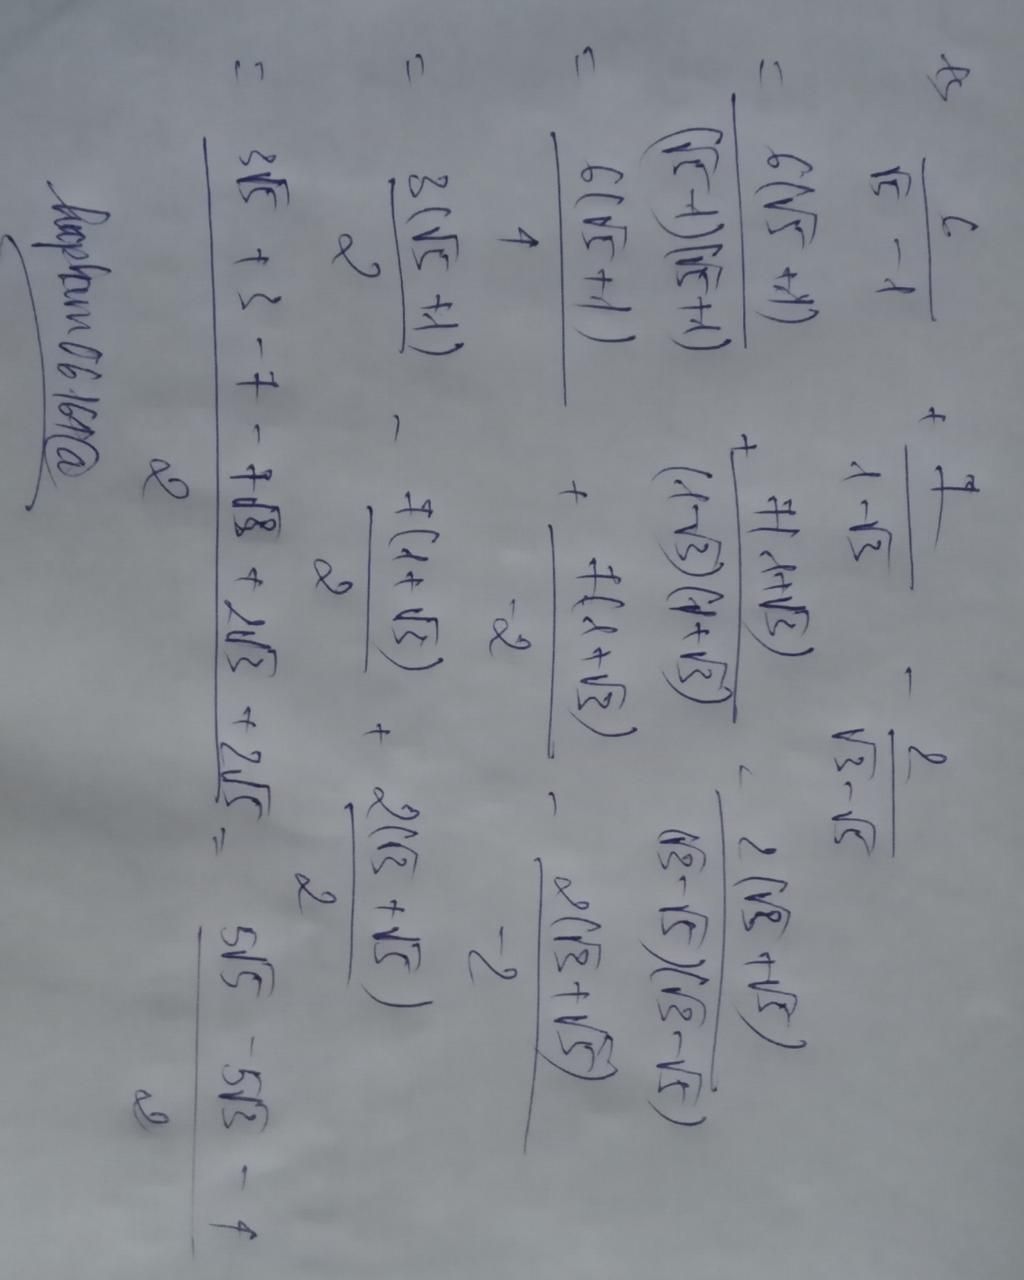 6/(√5 - 1) + 7/(1-√3) - 2/(√3-√5)
= 6(√5 +1)/(√5-1)(√5+1) + 7(1+√3)/(1-√3)(1+√3) - 2(√3 +√5)/(√3-√5)(√3-√5)
= 6(√5 +1)/4 + 7(1+√3)/-2 - 2(√3+√5)/-2
= 3(√5 +1)/2 - 7(1+√3)/2 + 2(√3 +√5)/2
= (3√5 + 3 - 7 - 7√3 + 2√3 + 2√5)/2 = (5√5 - 5√3 - 4)/2